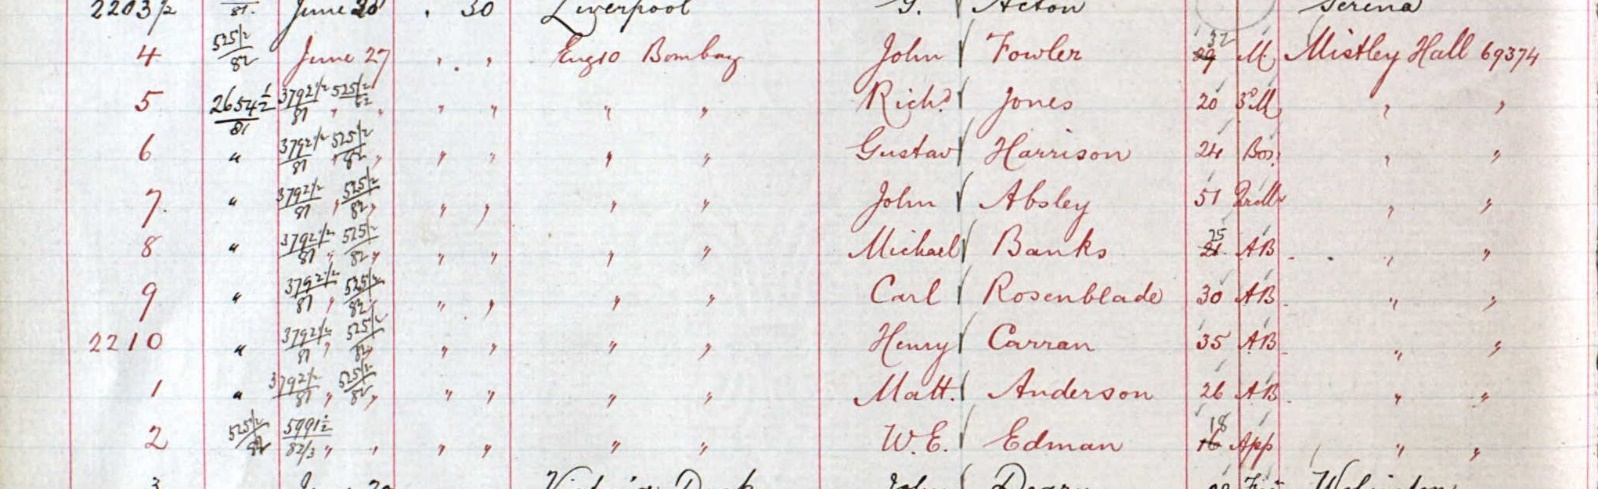 2203½ 81. June 20 " 30 Liverpool G. Acton Serena
4 525½/82 June 27 " " Eng to Bombay John Fowler 29 32 M Mistley Hall 69374
5 2654½/81 3792½/81 525½/82 " " " " Richd Jones 20 " "
6 " 3792½/81 525½/82 " " " " Gustav Harrison 24 Bos. " "
7 " 3792½/81 525½/82 " " " " John Absley 51 " "
8 " 3792½/81 525½/82 " " " " Michael Banks 21 25 AB " "
9 " 3792½/81 525½/82 " " " " Carl Rosenblade 30 AB " "
2210 " 3792½/81 525½/82 " " " " Henry Carran 35 AB " "
1 " 3792½/81 525½/82 " " " " Matt. Anderson 26 AB " "
2 525½/82 5991½/82/3 " " " " " " W.E. Edman 16 18 App " "
3 June John